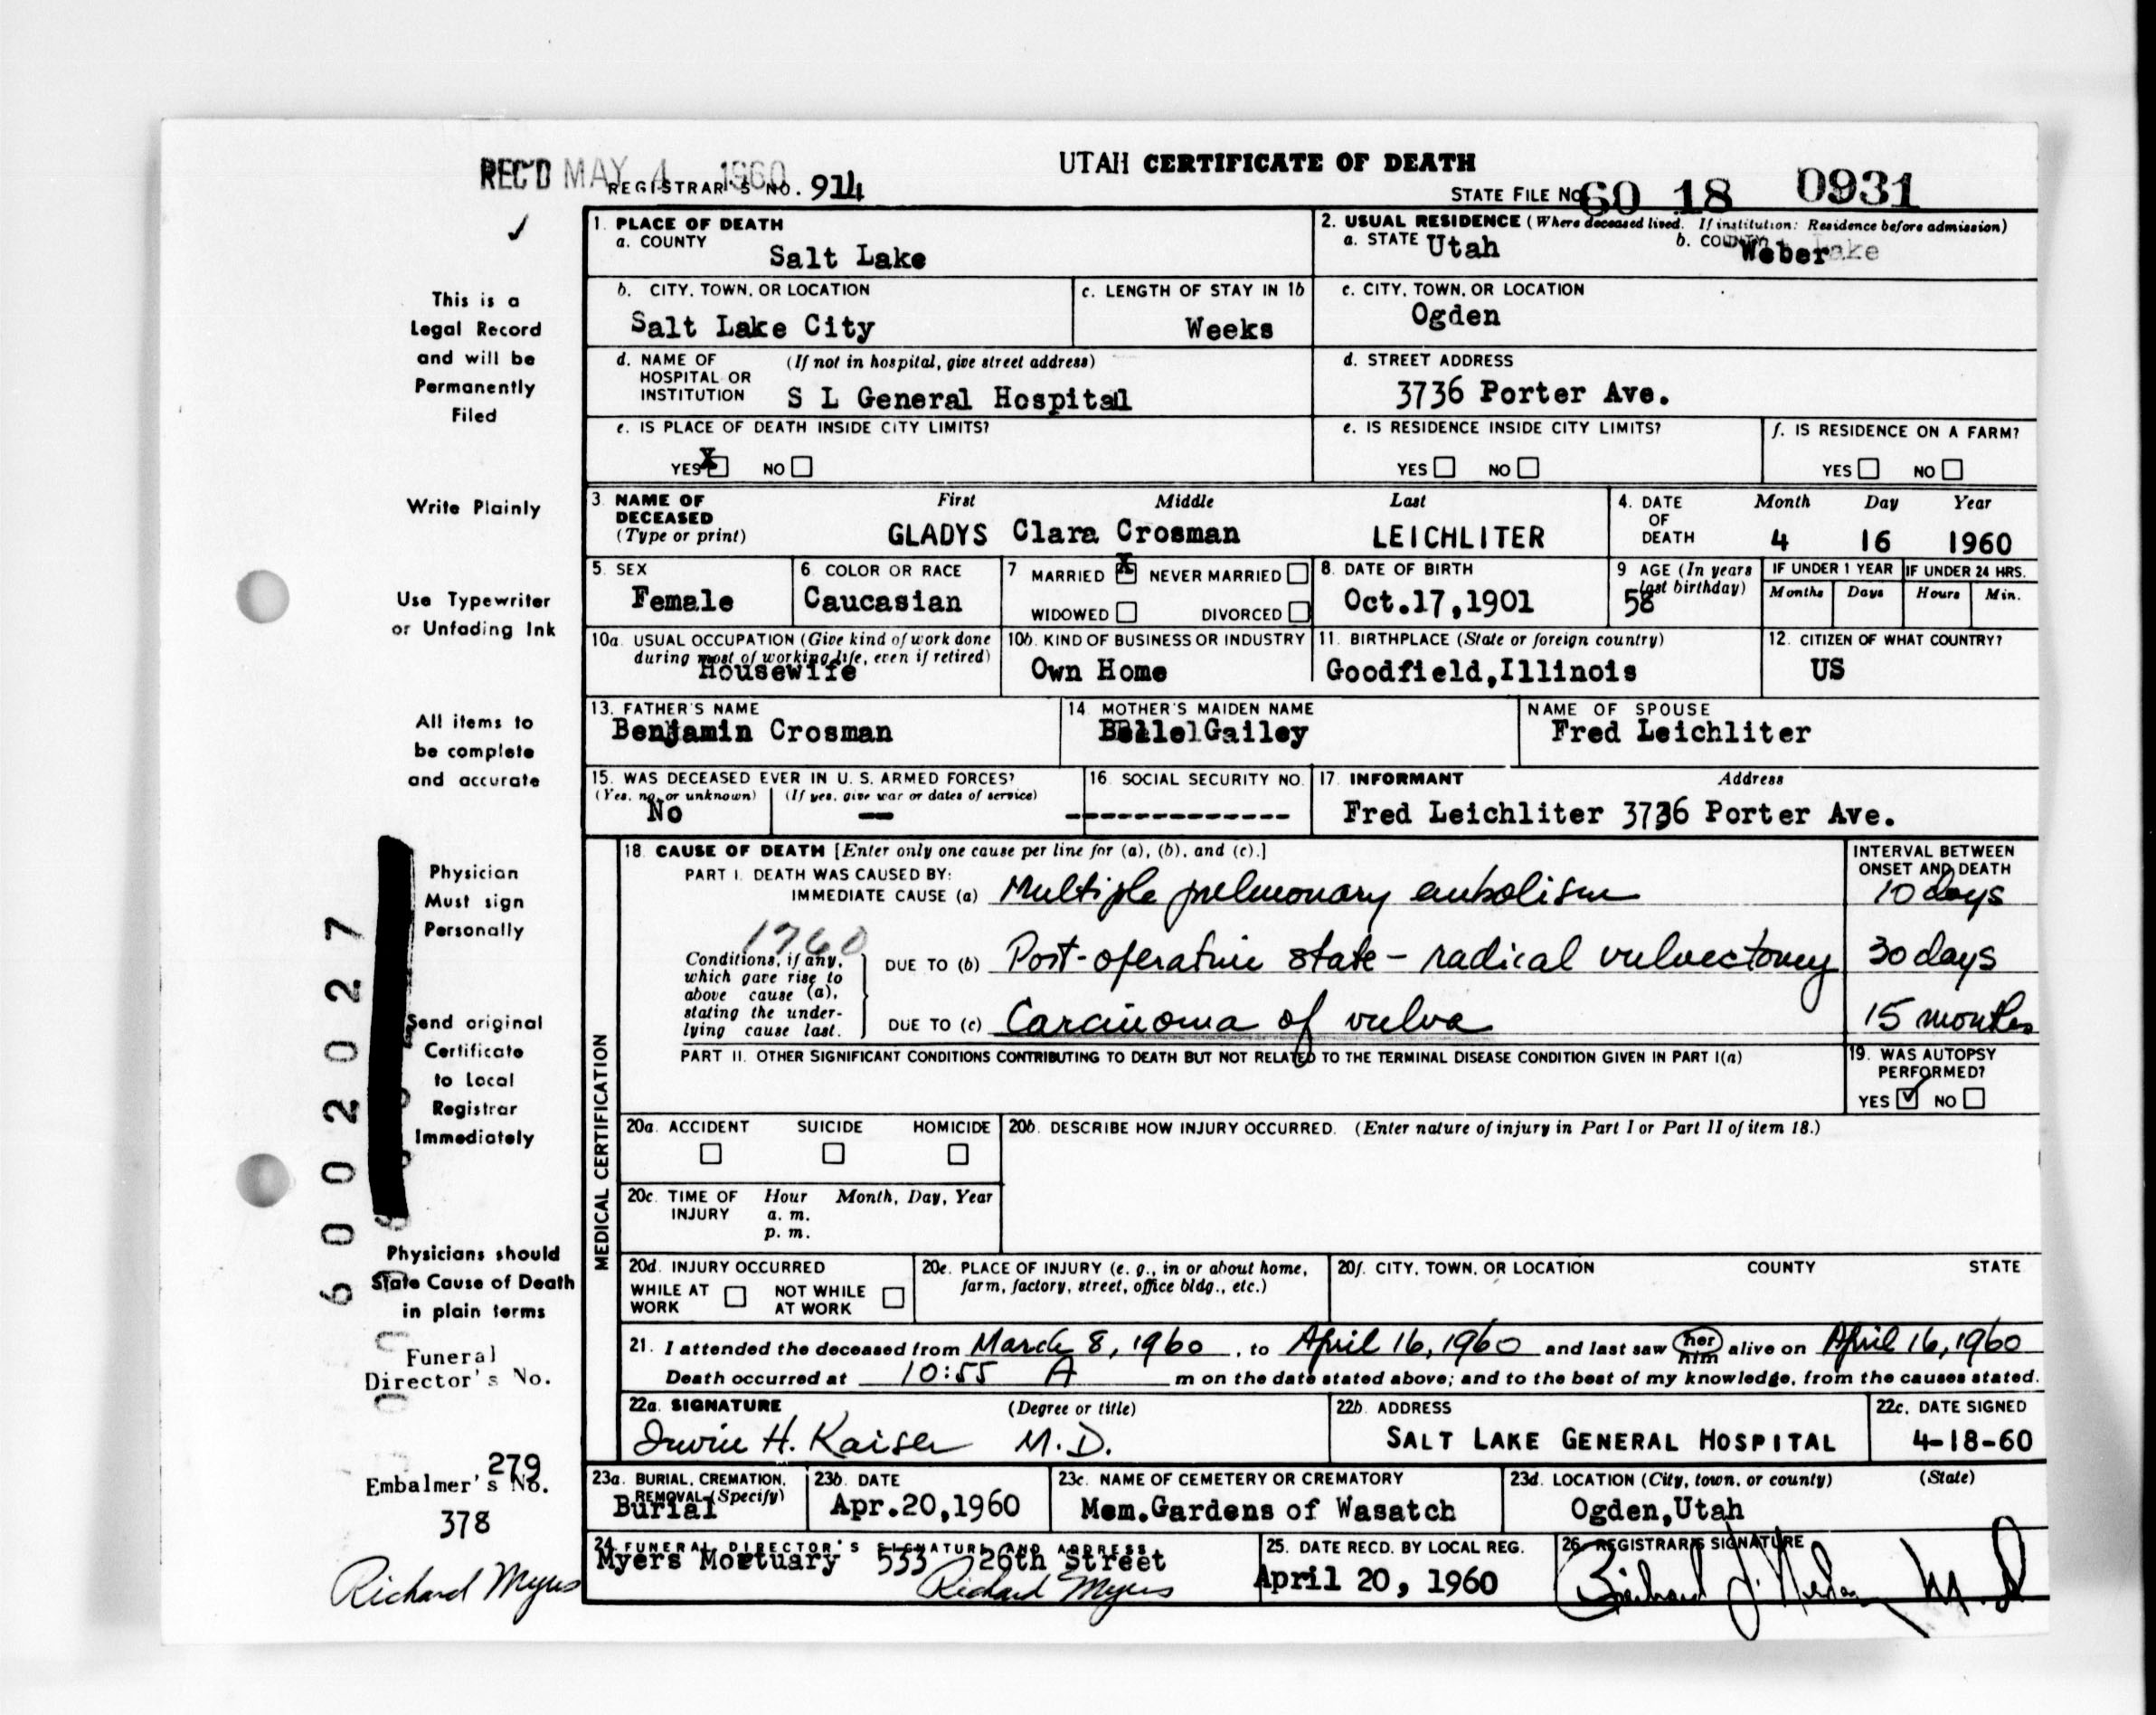 UTAH CERTIFICATE OF DEATH
REC'D MAY 4 1960
REGISTRAR'S NO. 914
STATE FILE NO. 60 18 0931
✓
This is a
Legal Record
and will be
Permanently
Filed
Write Plainly
Use Typewriter
or Unfading Ink
All items to
be complete
and accurate
Physician
Must sign
Personally
Send original
Certificate
to Local
Registrar
Immediately
Physicians should
State Cause of Death
in plain terms
Funeral
Director's No.
279
Embalmer's No.
378
Richard Myers
6002027
1. PLACE OF DEATH
a. COUNTY
Salt Lake
2. USUAL RESIDENCE (Where deceased lived. If institution: Residence before admission)
a. STATE Utah b. COUNTY Weber
b. CITY, TOWN, OR LOCATION
Salt Lake City
c. LENGTH OF STAY IN 1b
Weeks
c. CITY, TOWN, OR LOCATION
Ogden
d. NAME OF (If not in hospital, give street address)
HOSPITAL OR
INSTITUTION S L General Hospital
d. STREET ADDRESS
3736 Porter Ave.
e. IS PLACE OF DEATH INSIDE CITY LIMITS?
YES X NO
e. IS RESIDENCE INSIDE CITY LIMITS?
YES NO
f. IS RESIDENCE ON A FARM?
YES NO
3. NAME OF DECEASED (Type or print)
First Middle Last
GLADYS Clara Crosman LEICHLITER
4. DATE OF DEATH
Month Day Year
4 16 1960
5. SEX
Female
6. COLOR OR RACE
Caucasian
7 MARRIED X NEVER MARRIED
WIDOWED DIVORCED
8. DATE OF BIRTH
Oct.17,1901
9 AGE (In years last birthday)
58
IF UNDER 1 YEAR IF UNDER 24 HRS.
Months Days Hours Min.
10a. USUAL OCCUPATION (Give kind of work done
during most of working life, even if retired)
Housewife
10b. KIND OF BUSINESS OR INDUSTRY
Own Home
11. BIRTHPLACE (State or foreign country)
Goodfield,Illinois
12. CITIZEN OF WHAT COUNTRY?
US
13. FATHER'S NAME
Benjamin Crosman
14. MOTHER'S MAIDEN NAME
Gailey
NAME OF SPOUSE
Fred Leichliter
15. WAS DECEASED EVER IN U. S. ARMED FORCES?
(Yes, no, or unknown) (If yes, give war or dates of service)
No —
16. SOCIAL SECURITY NO.
--------------
17. INFORMANT Address
Fred Leichliter 3736 Porter Ave.
MEDICAL CERTIFICATION
18. CAUSE OF DEATH [Enter only one cause per line for (a), (b), and (c).]
INTERVAL BETWEEN
ONSET AND DEATH
PART I. DEATH WAS CAUSED BY:
IMMEDIATE CAUSE (a) Multiple pulmonary embolism 10 days
Conditions, if any,
which gave rise to
above cause (a),
stating the under-
lying cause last.
DUE TO (b) Post-operative state - radical vulvectomy 30 days
DUE TO (c) Carcinoma of vulva 15 months
PART II. OTHER SIGNIFICANT CONDITIONS CONTRIBUTING TO DEATH BUT NOT RELATED TO THE TERMINAL DISEASE CONDITION GIVEN IN PART I(a)
19. WAS AUTOPSY
PERFORMED?
YES ✓ NO
20a. ACCIDENT SUICIDE HOMICIDE
20b. DESCRIBE HOW INJURY OCCURRED. (Enter nature of injury in Part I or Part II of item 18.)
20c. TIME OF INJURY
Hour Month, Day, Year
a. m.
p. m.
20d. INJURY OCCURRED
WHILE AT WORK NOT WHILE AT WORK
20e. PLACE OF INJURY (e. g., in or about home,
farm, factory, street, office bldg., etc.)
20f. CITY, TOWN, OR LOCATION COUNTY STATE
21. I attended the deceased from March 8, 1960, to April 16, 1960 and last saw her him alive on April 16, 1960
Death occurred at 10:55 A m on the date stated above; and to the best of my knowledge, from the causes stated.
22a. SIGNATURE (Degree or title)
Irwin H. Kaiser M.D.
22b. ADDRESS
SALT LAKE GENERAL HOSPITAL
22c. DATE SIGNED
4-18-60
23a. BURIAL, CREMATION,
REMOVAL (Specify)
Burial
23b. DATE
Apr.20,1960
23c. NAME OF CEMETERY OR CREMATORY
Mem.Gardens of Wasatch
23d. LOCATION (City, town, or county) (State)
Ogden,Utah
24. FUNERAL DIRECTOR'S SIGNATURE AND ADDRESS
Myers Mortuary 533 26th Street
Richard Myers
25. DATE RECD. BY LOCAL REG.
April 20, 1960
26. REGISTRAR'S SIGNATURE